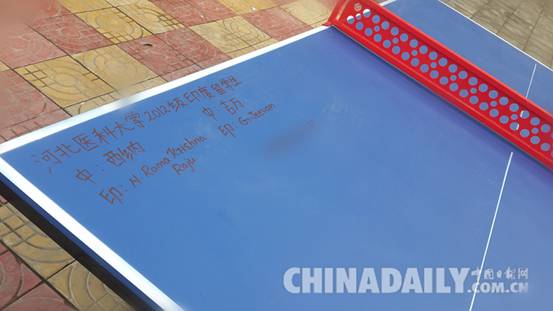 河北医科大学2012级印度留学生
中: 西纳 中 古万
印: N Rama Krishna Raju 印 G. Jeevan
CHINADAILY
中国日报网
.COM.CN